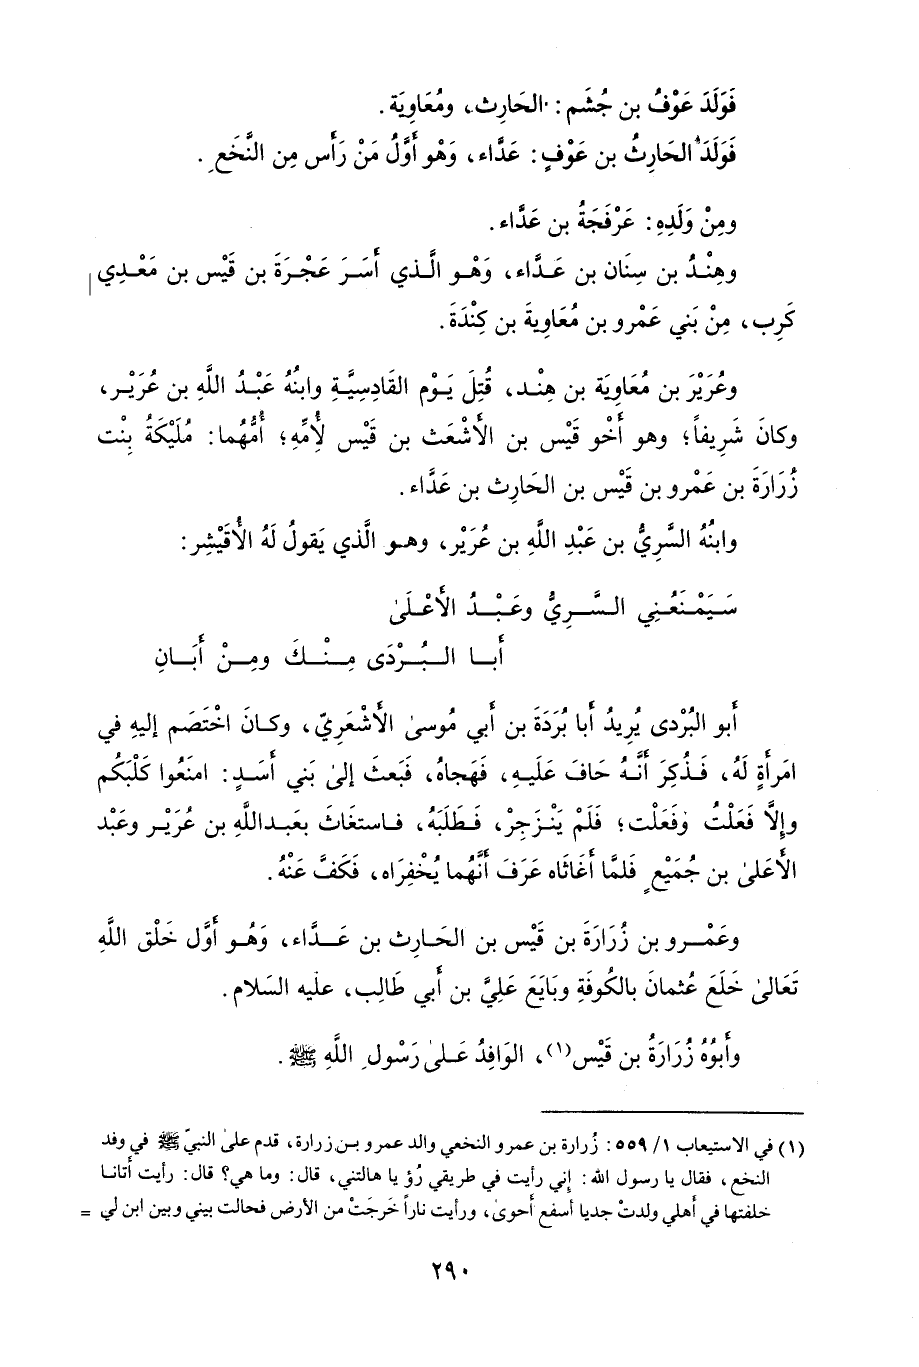 فَوَلَدَ عَوْفُ بن جُشَم: الحَارِث، ومُعَاوِيَة.
فَوَلَدَ الحَارِثُ بن عَوْفٍ: عَدَّاء، وَهْو أَوَّلُ مَنْ رَأَس مِن النَّخَعِ.
ومِنْ وَلَدِهِ: عَرْفَجَةُ بن عَدَّاء.
وهِنْدُ بن سِنَان بن عَدَّاء، وَهْو الَّذي أَسَرَ عَجْرَةَ بن قَيْس بن مَعْدِي
كَرِب، مِنْ بَني عَمْرو بن مُعَاوِيةَ بن كِنْدَةَ.
وعُرَيْرَ بن مُعَاوِيَة بن هِنْد، قُتِلَ يَوْم القَادِسِيَّةِ وابنُهُ عَبْدُ اللَّهِ بن عُرَيْر،
وكانَ شَرِيفاً؛ وهو أَخْو قَيْس بن الأَشْعَث بن قَيْس لأُمِّهِ؛ أُمُّهُما: مُلَيْكَةُ بِنْت
زُرَارَةَ بن عَمْرو بن قَيْس بن الحَارِث بن عَدَّاء.
وابنُهُ السَّرِيُّ بن عَبْدِ اللَّهِ بن عُرَيْر، وهو الَّذي يَقولُ لَهُ الأُقَيْشِر:
سَيَمْنَعُنِي السَّرِيُّ وعَبْدُ الأَعْلَىٰ
أَبا البُرْدَى مِنْكَ ومِنْ أَبَانِ
أَبو البُرْدى يُرِيدُ أَبا بُرَدَةَ بن أَبي مُوسىٰ الأَشْعَرِيّ، وكانَ اخْتَصَم إليهِ في
امرَأَةٍ لَهُ، فَذُكِرَ أَنَّهُ حَافَ عَلَيهِ، فَهَجاهُ، فَبَعثَ إلىٰ بَني أَسَدٍ: امنَعُوا كَلْبَكُم
وإلَّا فَعَلْتُ وَفَعَلْت؛ فَلَمْ يَنْزَجِرْ، فَطَلَبَهُ، فاستغَاثَ بعَبداللَّهِ بن عُرَيْر وعَبْد
الأَعلىٰ بن جُمَيْعٍ فلمَّا أَغاثَاه عَرَفَ أَنَّهُما يُخْفِرَاه، فَكَفَّ عَنْهُ.
وعَمْرو بن زُرَارَةَ بن قَيْس بن الحَارِث بن عَدَّاء، وَهُو أَوَّل خَلْق اللَّهِ
تَعَالىٰ خَلَعَ عُثمانَ بالكُوفَةِ وبَايَعَ عَلِيَّ بن أَبي طَالِب، علَيه السَلام.
وأَبوُهُ زُرَارَةُ بن قَيْس(١)، الوَافِدُ عَلىٰ رَسُولِ اللَّهِ ﷺ.
(١) في الاستيعاب ١/ ٥٥٩: زُرارة بن عمرو النخعي والد عمرو بن زرارة، قدم علىٰ النبيّ ﷺ في وفد
النخع، فقال يا رسول الله: إني رأيت في طريقي رُؤيا هالتني، قال: وما هي؟ قال: رأيت أتانا
خلفتها في أهلي ولدتْ جديا أسفع أحوىٰ، ورأيت ناراً خَرجَتْ من الأرض فحالت بيني وبين ابن لي =
٢٩٠